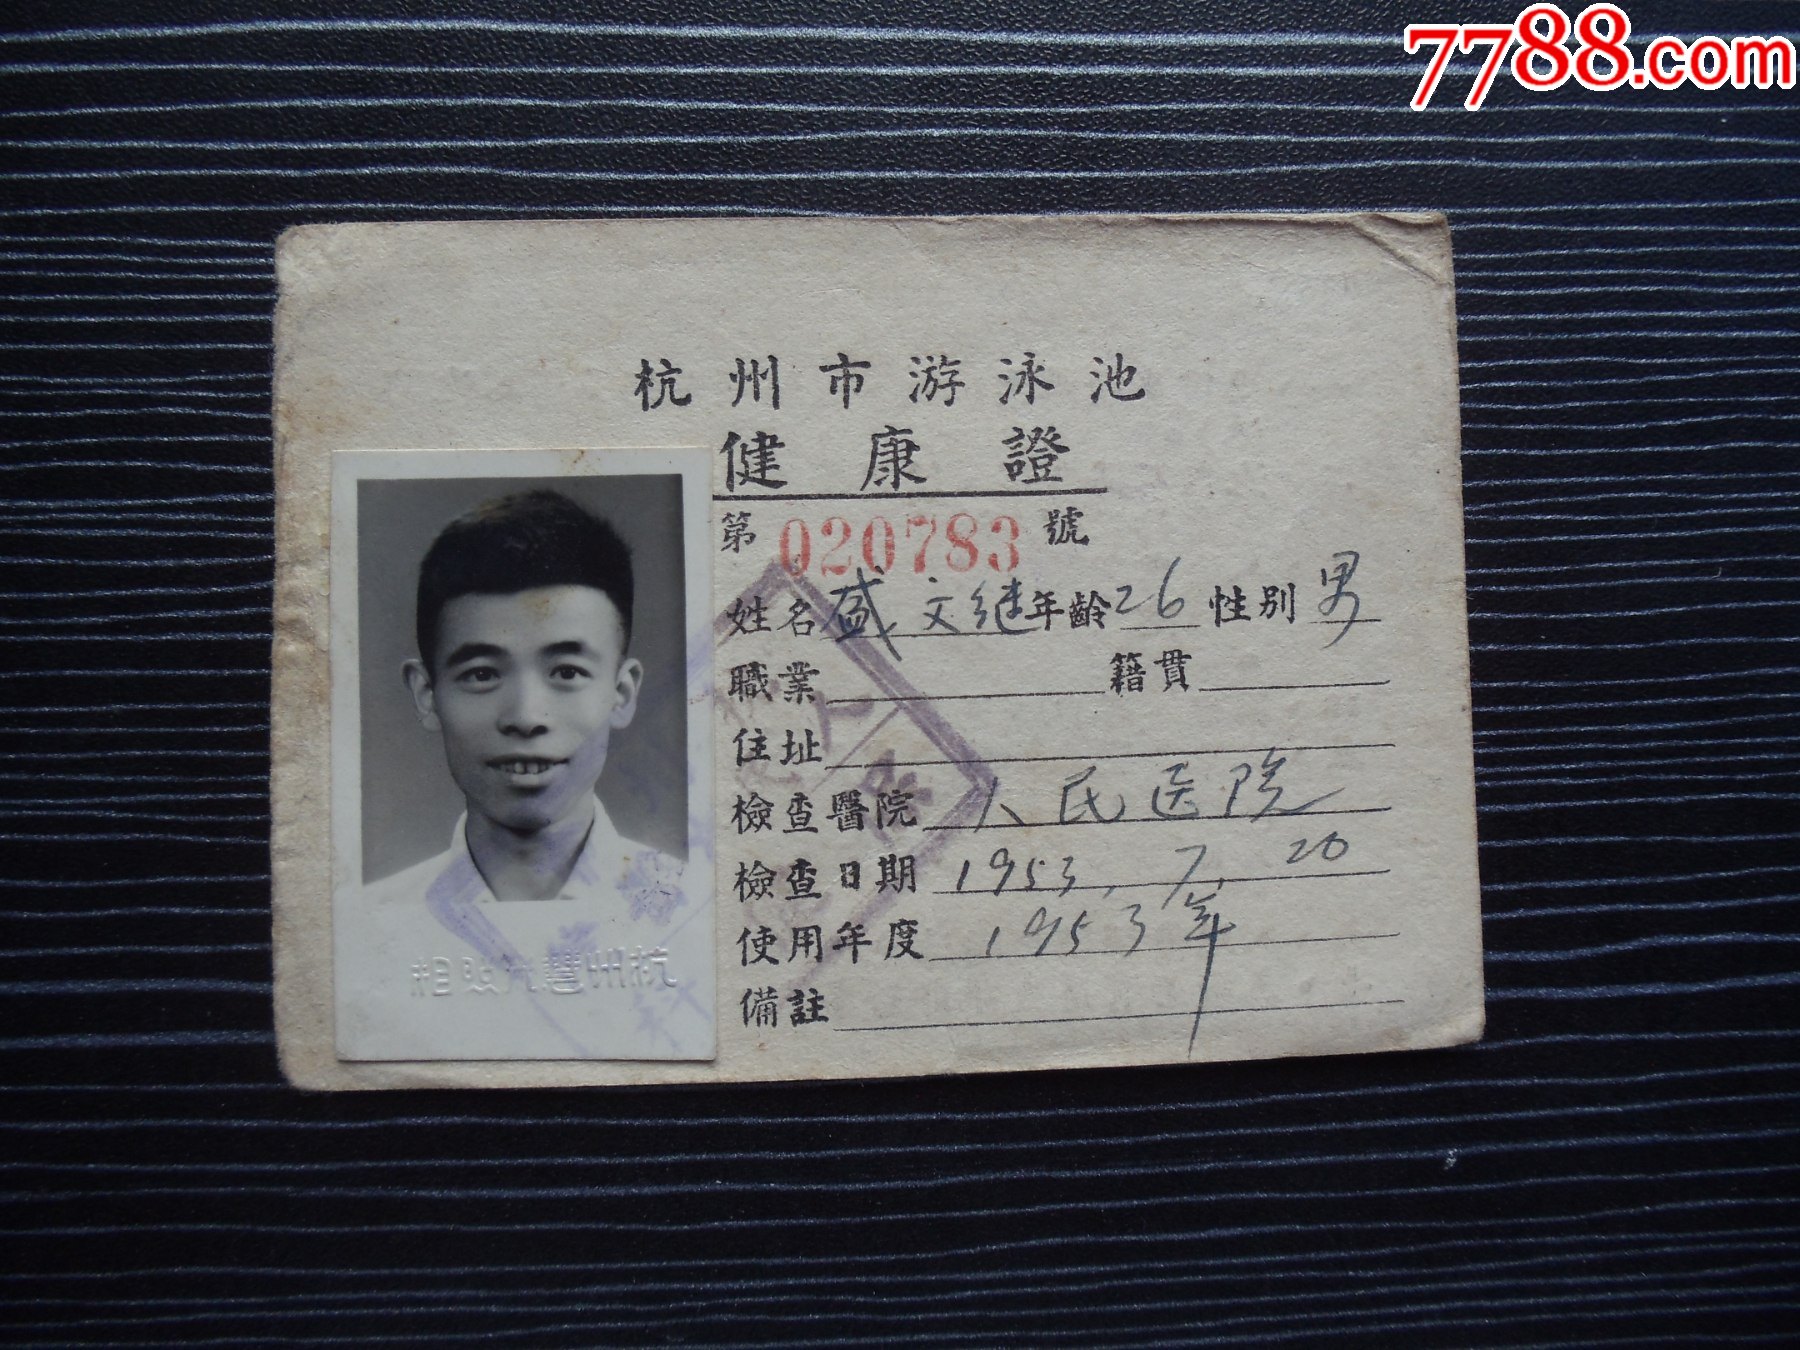 7788.com
杭州市游泳池
健康證
第020783號
姓名盛文继年齡26性别男
職業 籍貫
住址
檢查醫院人民医院
檢查日期1953.7.20
使用年度1953年
備註
杭州豐光照相